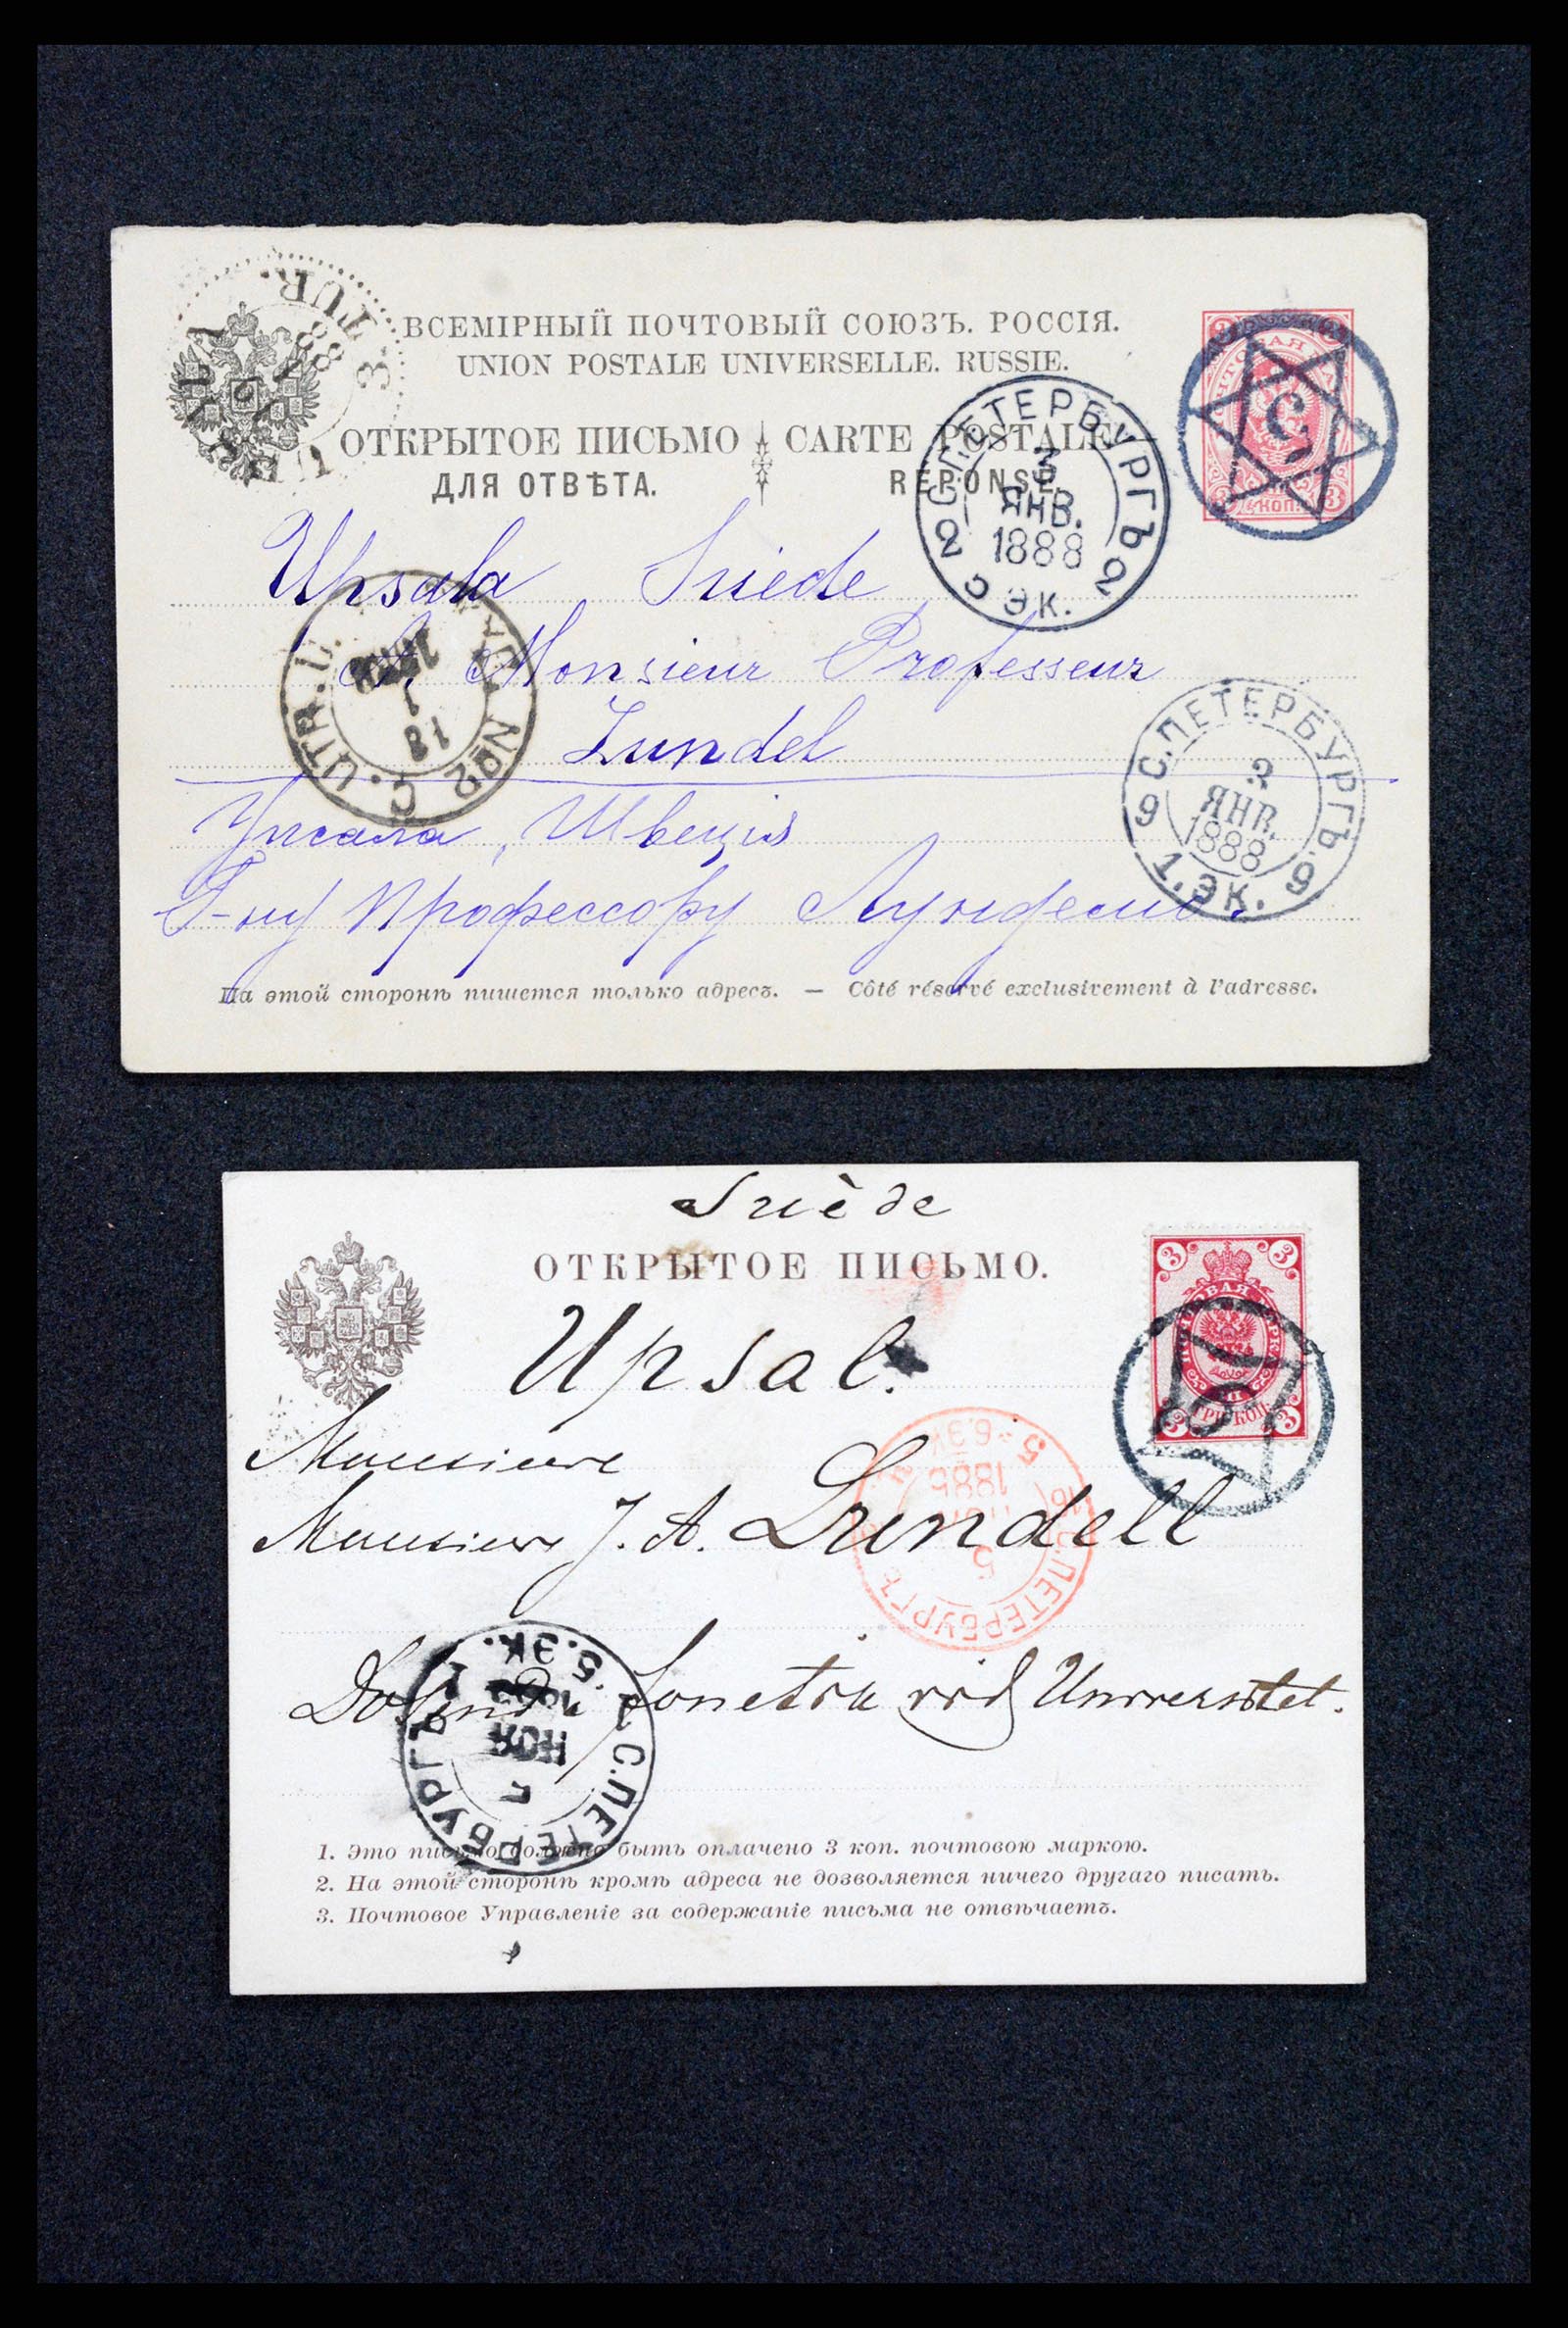 ВСЕМІРНЫЙ ПОЧТОВЫЙ СОЮЗЪ. РОССІЯ.
UNION POSTALE UNIVERSELLE. RUSSIE.
ОТКРЫТОЕ ПИСЬМО CARTE POSTALE
ДЛЯ ОТВѢТА. REPONSE.
3 TUR.
С.ПЕТЕРБУРГЪ
3
ЯНВ.
1888
2 С ЭК. 2
3 КОП. 3
С
Upsala Suède
A Monsieur Professeur
Lundel
No2 C. UTR. U.
18
1
С.ПЕТЕРБУРГЪ
3
ЯНВ.
1888
9 1.ЭК. 9
Упсала, Швеція
Г-ну Профессору Лунделю.
На этой сторонѣ пишется только адресъ. — Côté réservé exclusivement à l'adresse.
Suède
ОТКРЫТОЕ ПИСЬМО.
3 3
ПОЧТОВАЯ
3 ТРИ КОП. 3
Upsal.
Monsieur
Monsieur J. A. Lundell
С.ПЕТЕРБУРГЪ
5
1885
6.ЭК.
Universitet.
С.ПЕТЕРБУРГЪ
НОЯ
5.ЭК.
1. Это письмо должно быть оплачено 3 коп. почтовою маркою.
2. На этой сторонѣ кромѣ адреса не дозволяется ничего другаго писать.
3. Почтовое Управленіе за содержаніе письма не отвѣчаетъ.